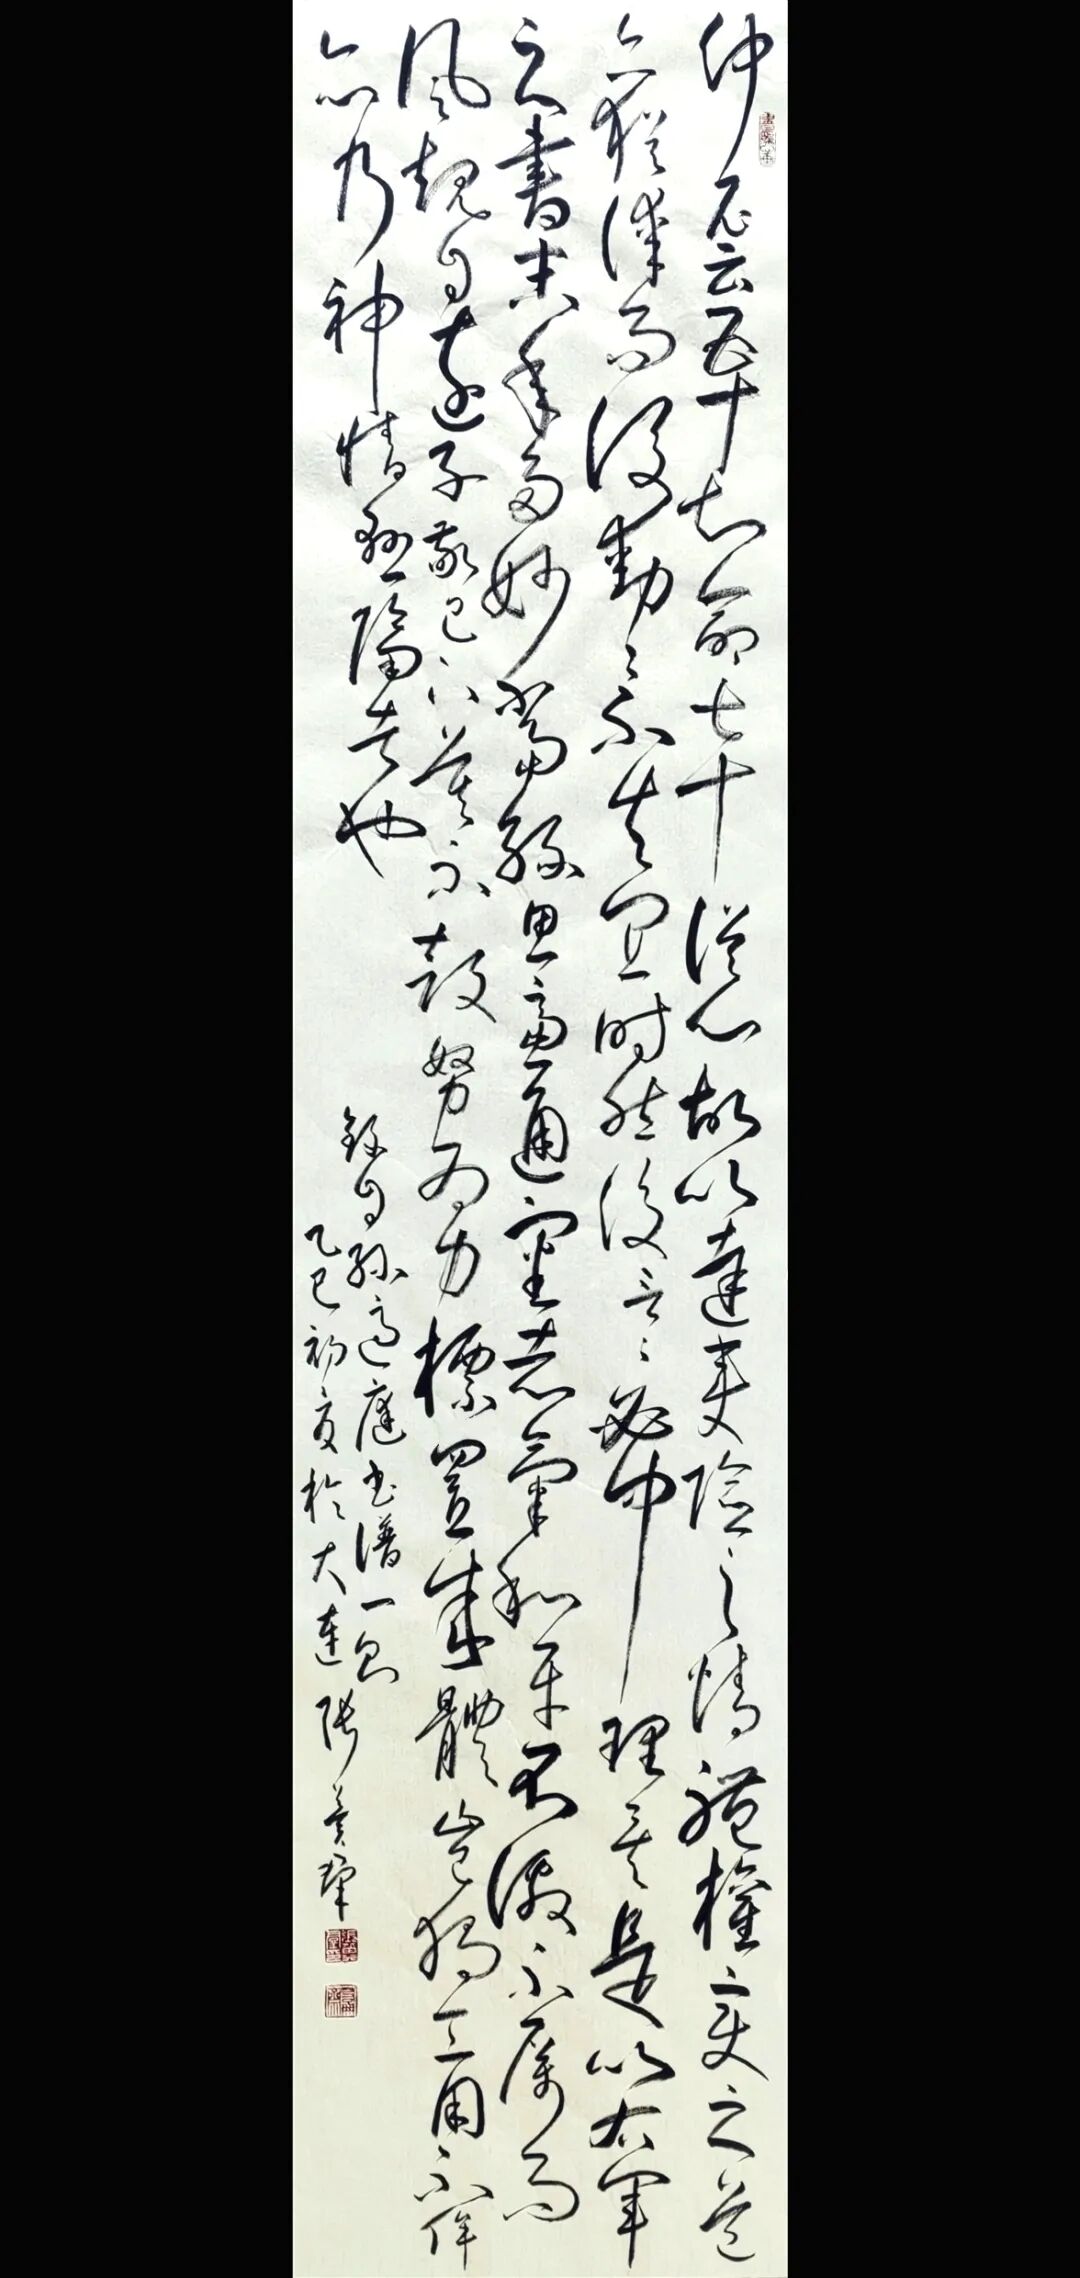 仲尼云五十知命七十從心故以達夷險之情體權變之道
亦猶謀而後動〻不失宜时然後言〻必中理矣是以右軍
之書末年多妙當緣思慮通審志氣和平不激不厲而
風規自遠子敬已下莫不鼓努為力標置成體豈獨工用不侔
亦乃神情懸隔者也
錄自孫過庭书譜一則
乙巳初夏於大連張